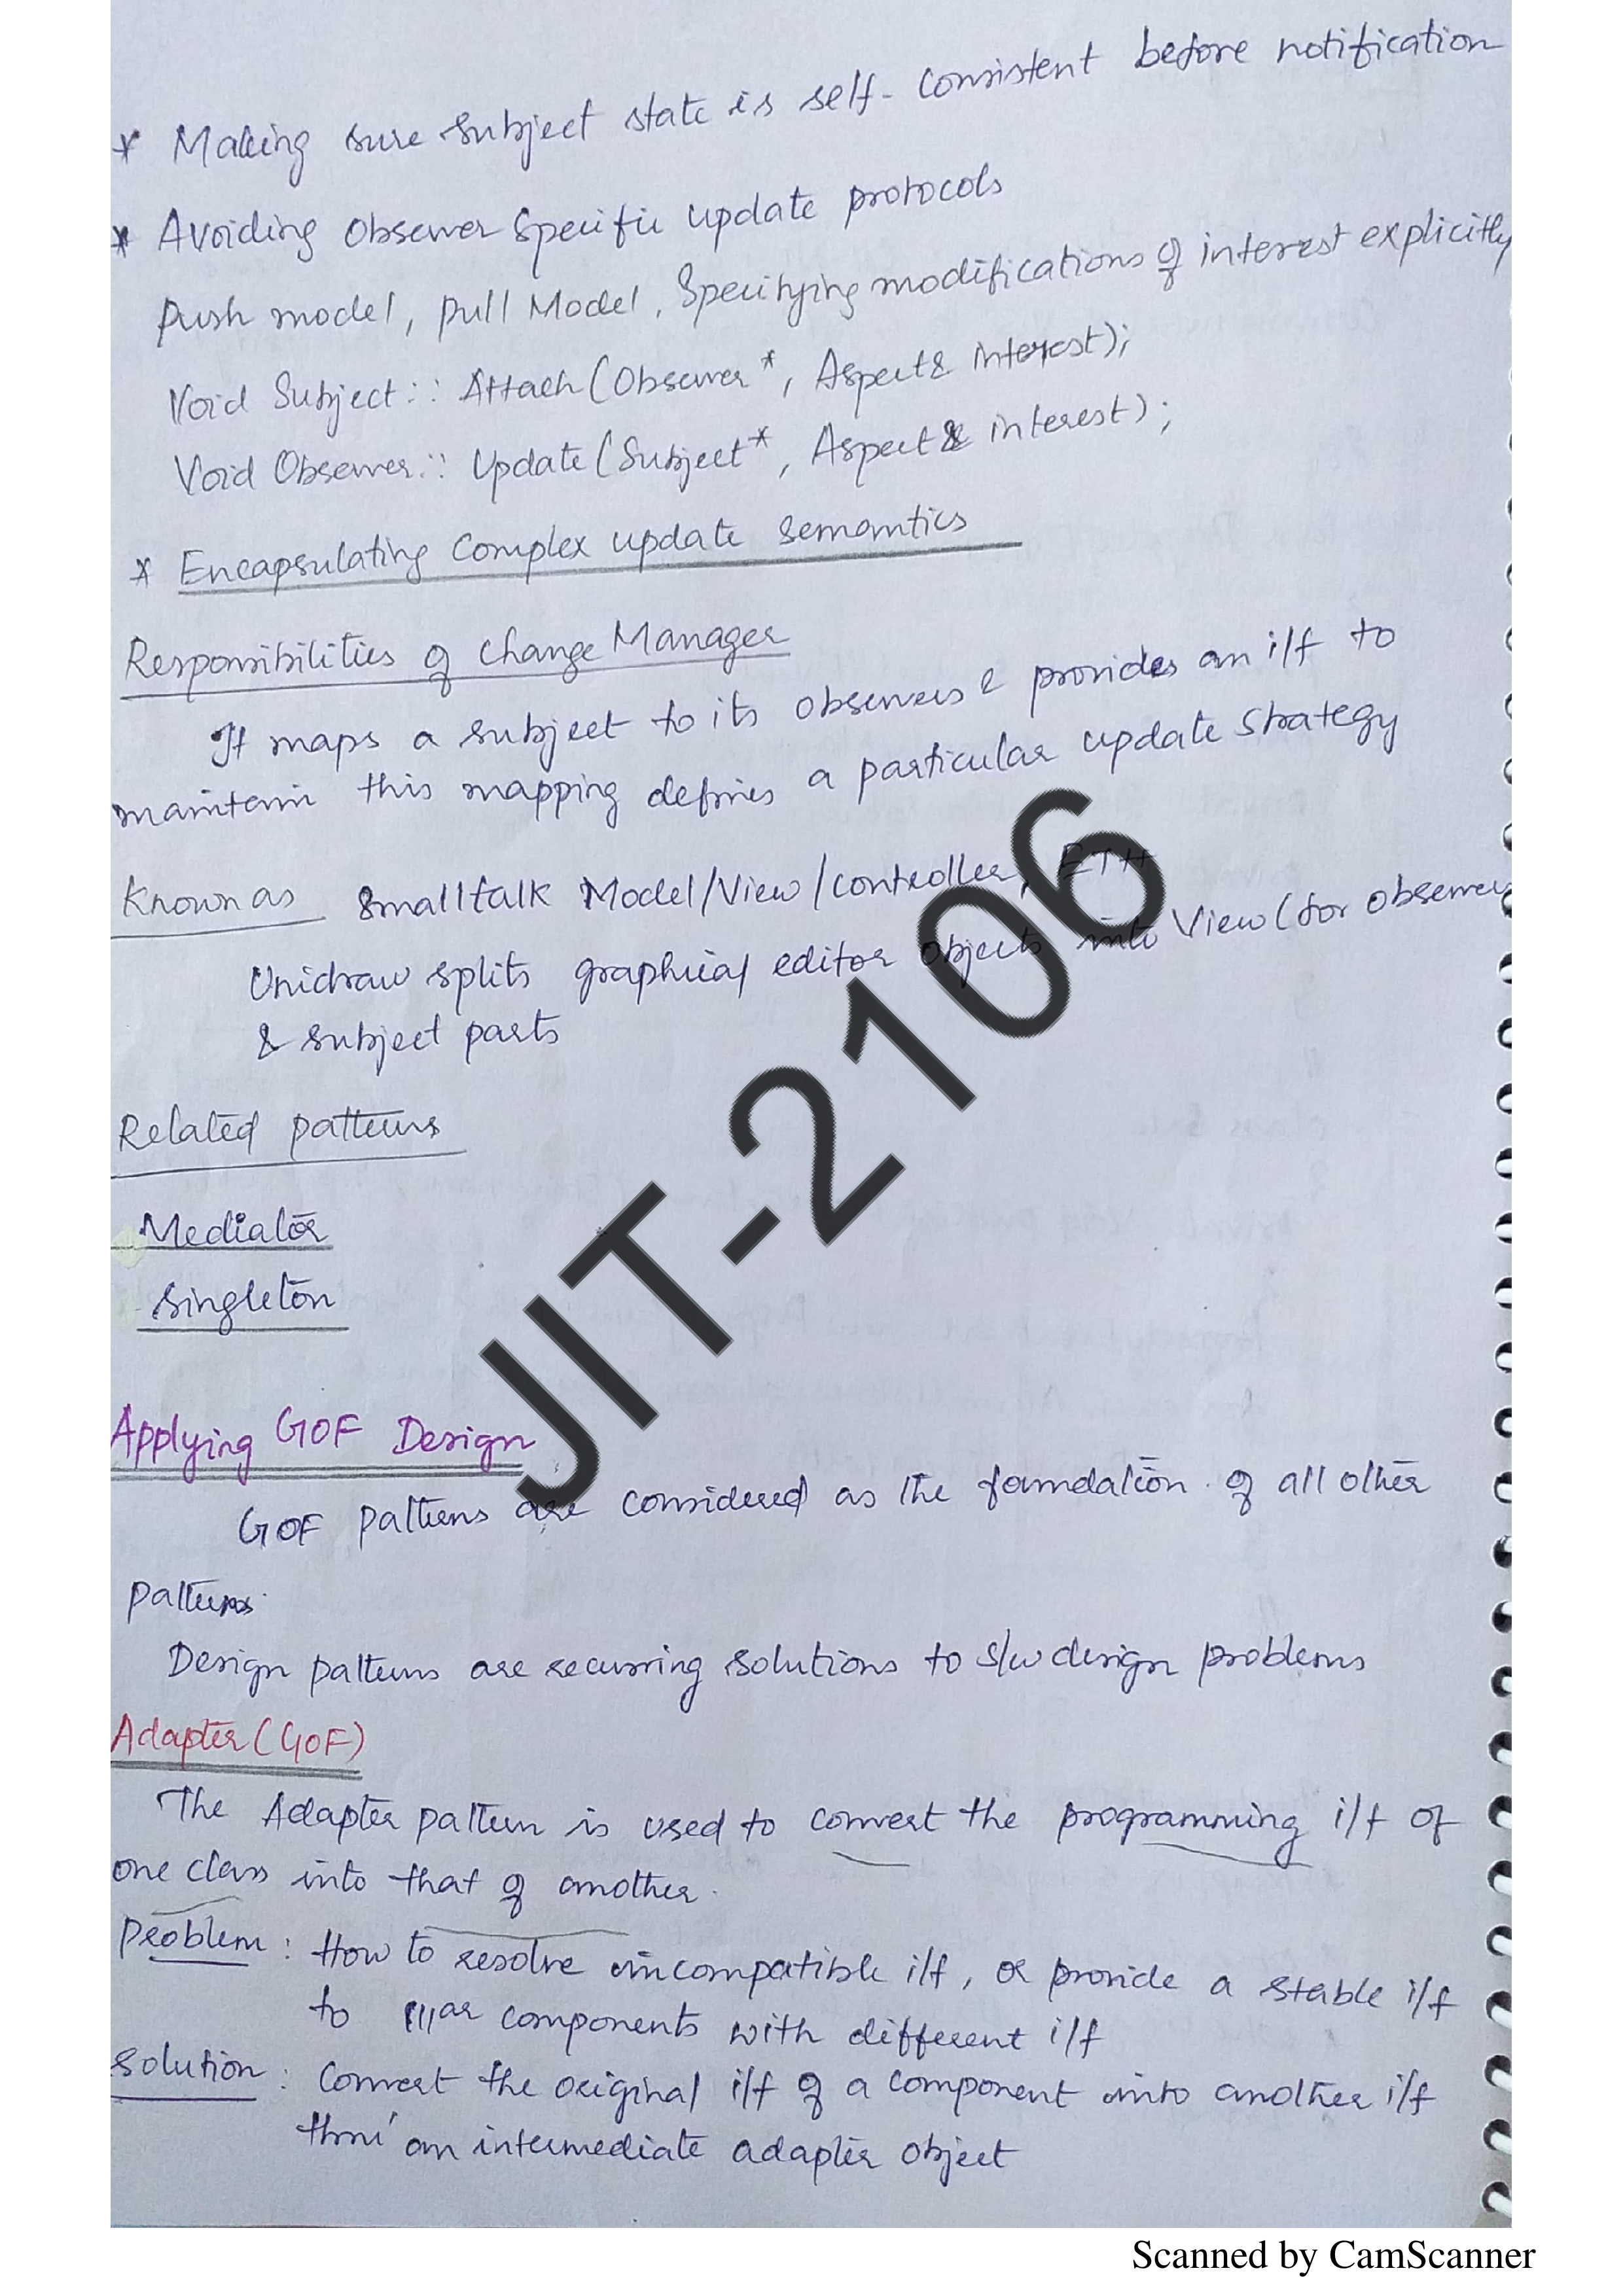 * Making sure subject state is self-consistent before notification
* Avoiding observer specific update protocols
Push model, pull Model, Specifying modifications of interest explicitly
Void Subject :: Attach (Observer *, Aspect & interest);
Void Observer :: Update (Subject *, Aspect & interest);
* Encapsulating Complex update semantics
Responsibilities of change Manager
It maps a subject to its observers & provides an i/f to
maintain this mapping defines a particular update strategy
Known as Smalltalk Model/View/controller, ET++
Unidraw splits graphical editor objects into View (for observer
& subject parts
Related patterns
Mediator
Singleton
Applying GOF Design
GOF patterns are considered as the foundation of all other
patterns.
Design patterns are recurring solutions to s/w design problems
Adapter (GOF)
The Adapter pattern is used to convert the programming i/f of
one class into that of another.
Problem : How to resolve incompatible i/f, or provide a stable i/f
to lllar components with different i/f
Solution : Convert the original i/f of a component into another i/f
thru' an intermediate adapter object
JIT-2106
Scanned by CamScanner